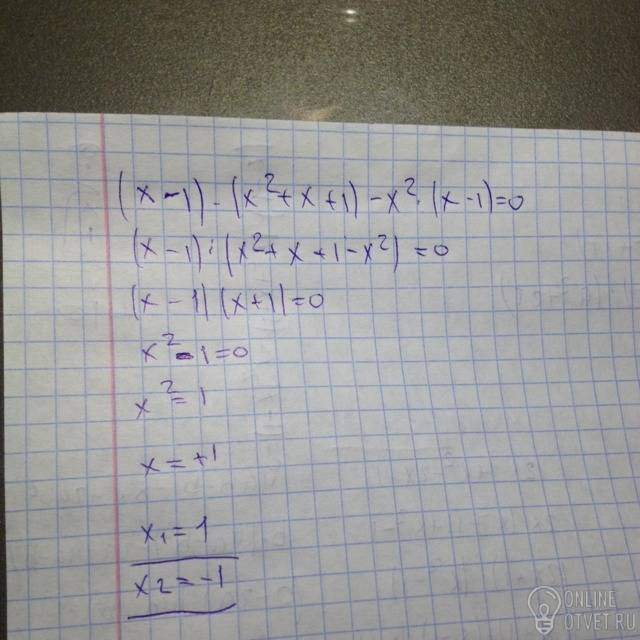 (x-1)-(x²+x+1)-x²·(x-1)=0
(x-1)·(x²+x+1-x²)=0
(x-1)(x+1)=0
x²-1=0
x²=1
x=+1
x₁=1
x₂=-1
ONLINE
OTVET.RU